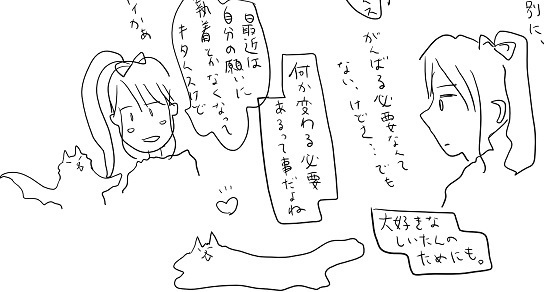 別に、
がんばる必要なんて
ない、けどさ…でも
何か変わる必要
あるって事だよね
大好きな
しいたんの
ためにも。
ス
最近は
自分の願いに
執着とかなくなって
キタんスけど
かぁ